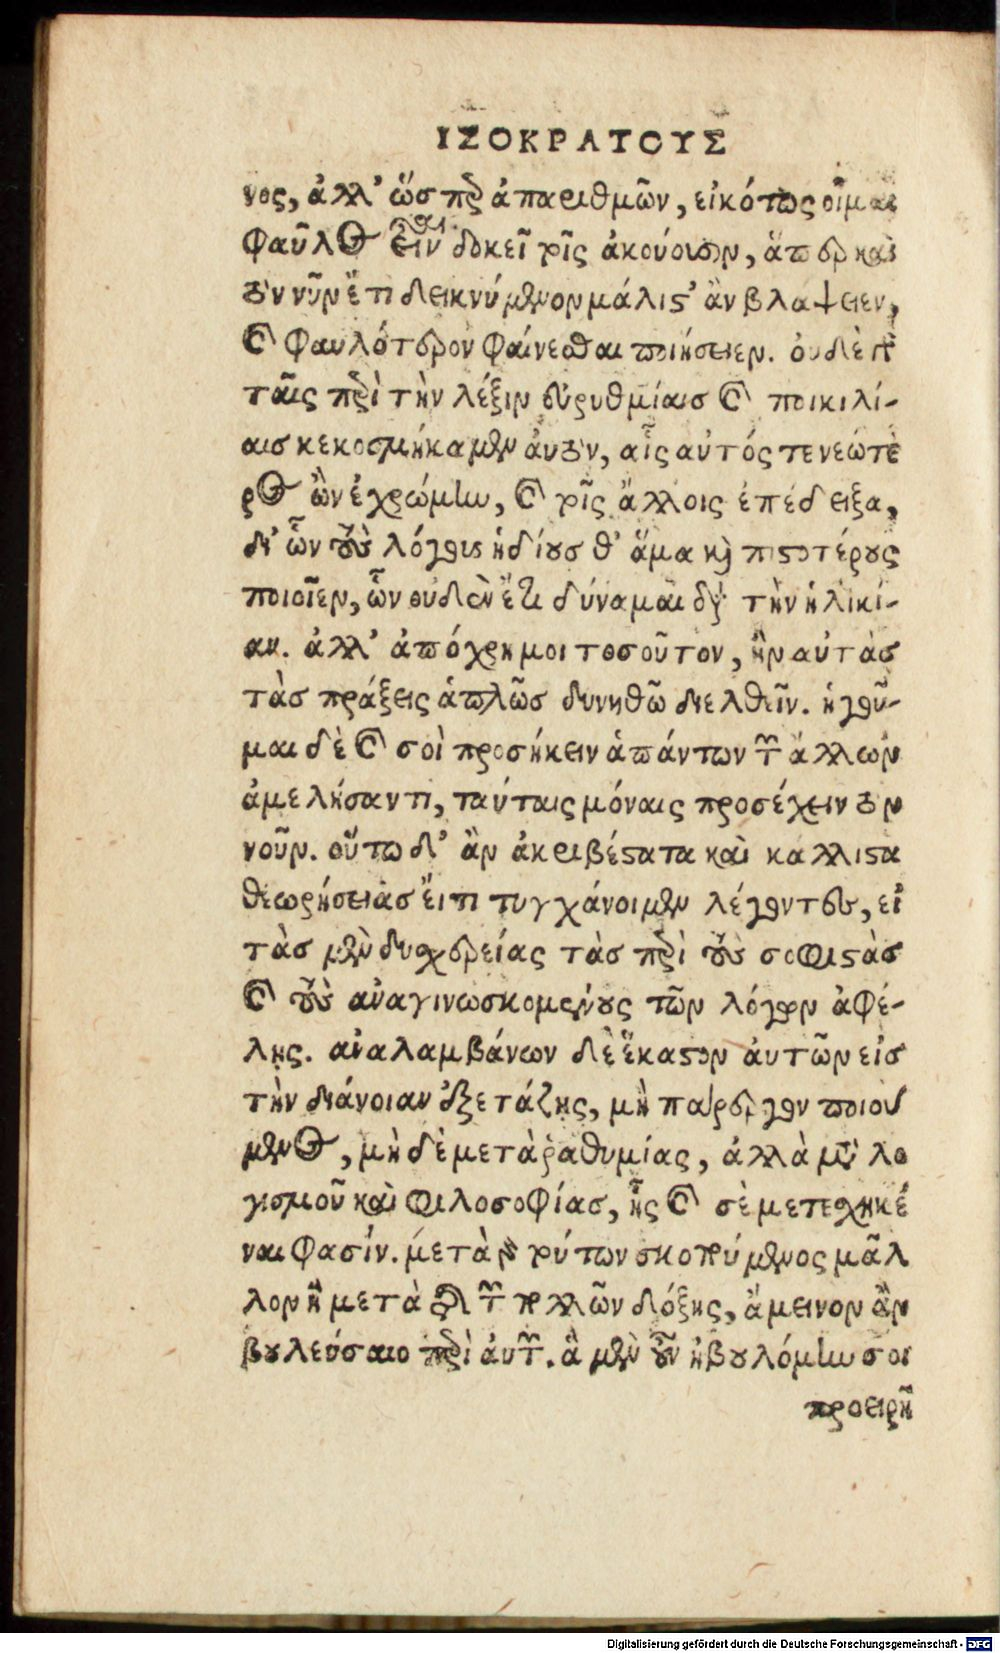 ΙΣΟΚΡΑΤΟΥΣ
νος, ἀλλ' ὥσπερ ἀπαριθμῶν, εἰκότως οἶμαι
φαῦλος εἶναι δοκεῖ τοῖς ἀκούουσιν, ἅπερ καὶ
τὸν νῦν ἔτι δεικνύμενον μάλιστ' ἂν βλάψειεν,
καὶ φαυλότερον φαίνεσθαι ποιήσειεν. οὐδὲ γὰρ
ταῖς περὶ τὴν λέξιν εὐρυθμίαισ καὶ ποικιλί-
αισ κεκοσμήκαμεν αὐτὸν, αἷς αὐτός τε νεώτε
ρος ὢν ἐχρώμην, καὶ τοῖς ἄλλοις ἐπέδειξα,
δι' ὧν τοὺς λόγους ἡδίουσ θ' ἅμα καὶ πιστοτέρους
ποιοῖεν, ὧν οὐδὲν ἔτι δύναμαι διὰ τὴν ἡλικί-
αν. ἀλλ' ἀπόχρη μοι τοσοῦτον, ἢν αὐτὰσ
τὰσ πράξεις ἁπλῶσ δυνηθῶ διελθεῖν. ἡγοῦ-
μαι δὲ καὶ σοὶ προσήκειν ἁπάντων τῶν ἄλλων
ἀμελήσαντι, ταύταις μόναις προσέχειν τὸν
νοῦν. οὕτω δ' ἂν ἀκριβέστατα καὶ κάλλιστα
θεωρήσειασ εἴ τι τυγχάνοιμεν λέγοντες, εἰ
τὰσ μὲν δυσχερείας τὰσ περὶ τοὺς σοφιστὰσ
καὶ τοὺς ἀναγινωσκομένους τῶν λόγων ἀφέ-
λῃς. ἀναλαμβάνων δὲ ἕκαστον αὐτῶν εἰσ
τὴν διάνοιαν ἐξετάζῃς, μὴ πάρεργον ποιού
μενος, μὴ δὲ μετὰ ῥαθυμίας, ἀλλὰ μετὰ λο
γισμοῦ καὶ φιλοσοφίας, ἧς καὶ σὲ μετεσχηκέ
ναι φασίν. μετὰ γὰρ τούτων σκοπούμενος μᾶλ
λον ἢ μετὰ τῆς τῶν πολλῶν δόξης, ἄμεινον ἂν
βουλεύσαιο περὶ αὐτῶν. ἃ μὲν οὖν ἠβουλόμην σοι
προειρῆ
Digitalisierung gefördert durch die Deutsche Forschungsgemeinschaft - DFG